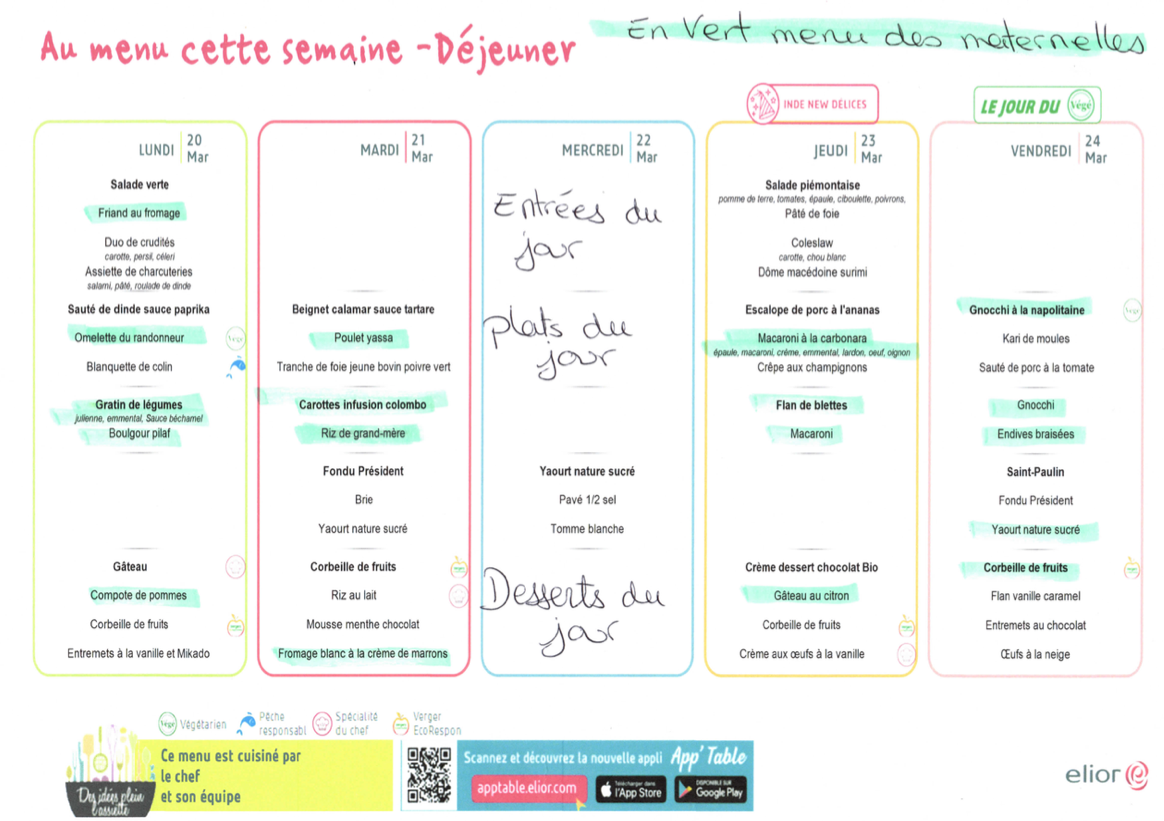 Au menu cette semaine -Déjeuner
En Vert menu des maternelles
INDE NEW DELICES
LE JOUR DU Végé
LUNDI 20 Mar
Salade verte
Friand au fromage
Duo de crudités
carotte, persil, céleri
Assiette de charcuteries
salami, pâté, roulade de dinde
Sauté de dinde sauce paprika
Omelette du randonneur
Végé
Blanquette de colin
Gratin de légumes
julienne, emmental, Sauce béchamel
Boulgour pilaf
Gâteau
Compote de pommes
Corbeille de fruits
Entremets à la vanille et Mikado
MARDI 21 Mar
Beignet calamar sauce tartare
Poulet yassa
Tranche de foie jeune bovin poivre vert
Carottes infusion colombo
Riz de grand-mère
Fondu Président
Brie
Yaourt nature sucré
Corbeille de fruits
Riz au lait
Mousse menthe chocolat
Fromage blanc à la crème de marrons
MERCREDI 22 Mar
Entrées du
jour
plats du
jour
Yaourt nature sucré
Pavé 1/2 sel
Tomme blanche
Desserts du
jour
JEUDI 23 Mar
Salade piémontaise
pomme de terre, tomates, épaule, ciboulette, poivrons,
Pâté de foie
Coleslaw
carotte, chou blanc
Dôme macédoine surimi
Escalope de porc à l'ananas
Macaroni à la carbonara
épaule, macaroni, crème, emmental, lardon, oeuf, oignon
Crêpe aux champignons
Flan de blettes
Macaroni
Crème dessert chocolat Bio
Gâteau au citron
Corbeille de fruits
Crème aux œufs à la vanille
VENDREDI 24 Mar
Gnocchi à la napolitaine
Végé
Kari de moules
Sauté de porc à la tomate
Gnocchi
Endives braisées
Saint-Paulin
Fondu Président
Yaourt nature sucré
Corbeille de fruits
Flan vanille caramel
Entremets au chocolat
Œufs à la neige
Végé Végétarien
Pêche responsabl
Spécialité du chef
Verger EcoRespon
Des idées plein l'assiette
Ce menu est cuisiné par
le chef
et son équipe
Scannez et découvrez la nouvelle appli App' Table
apptable.elior.com
Télécharger dans l'App Store
DISPONIBLE SUR Google Play
elior